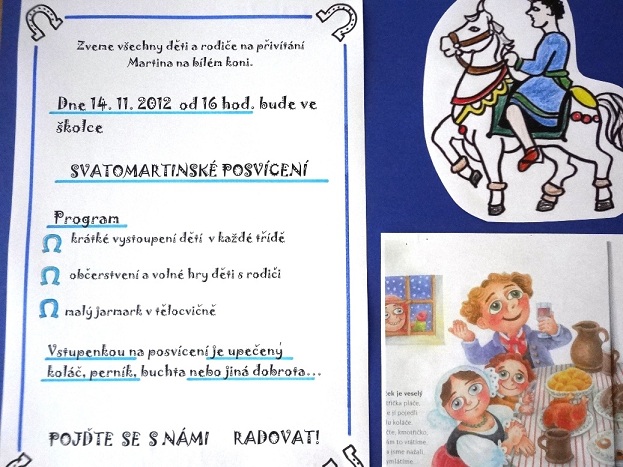 Zveme všechny děti a rodiče na přivítání
Martina na bílém koni.
Dne 14. 11. 2012 od 16 hod. bude ve
školce
SVATOMARTINSKÉ POSVÍCENÍ
Program
krátké vystoupení dětí v každé třídě
občerstvení a volné hry dětí s rodiči
malý jarmark v tělocvičně
Vstupenkou na posvícení je upečený
koláč, perník, buchta nebo jiná dobrota...
POJĎTE SE S NÁMI RADOVAT!
ek je veselý
pláče,
koláče